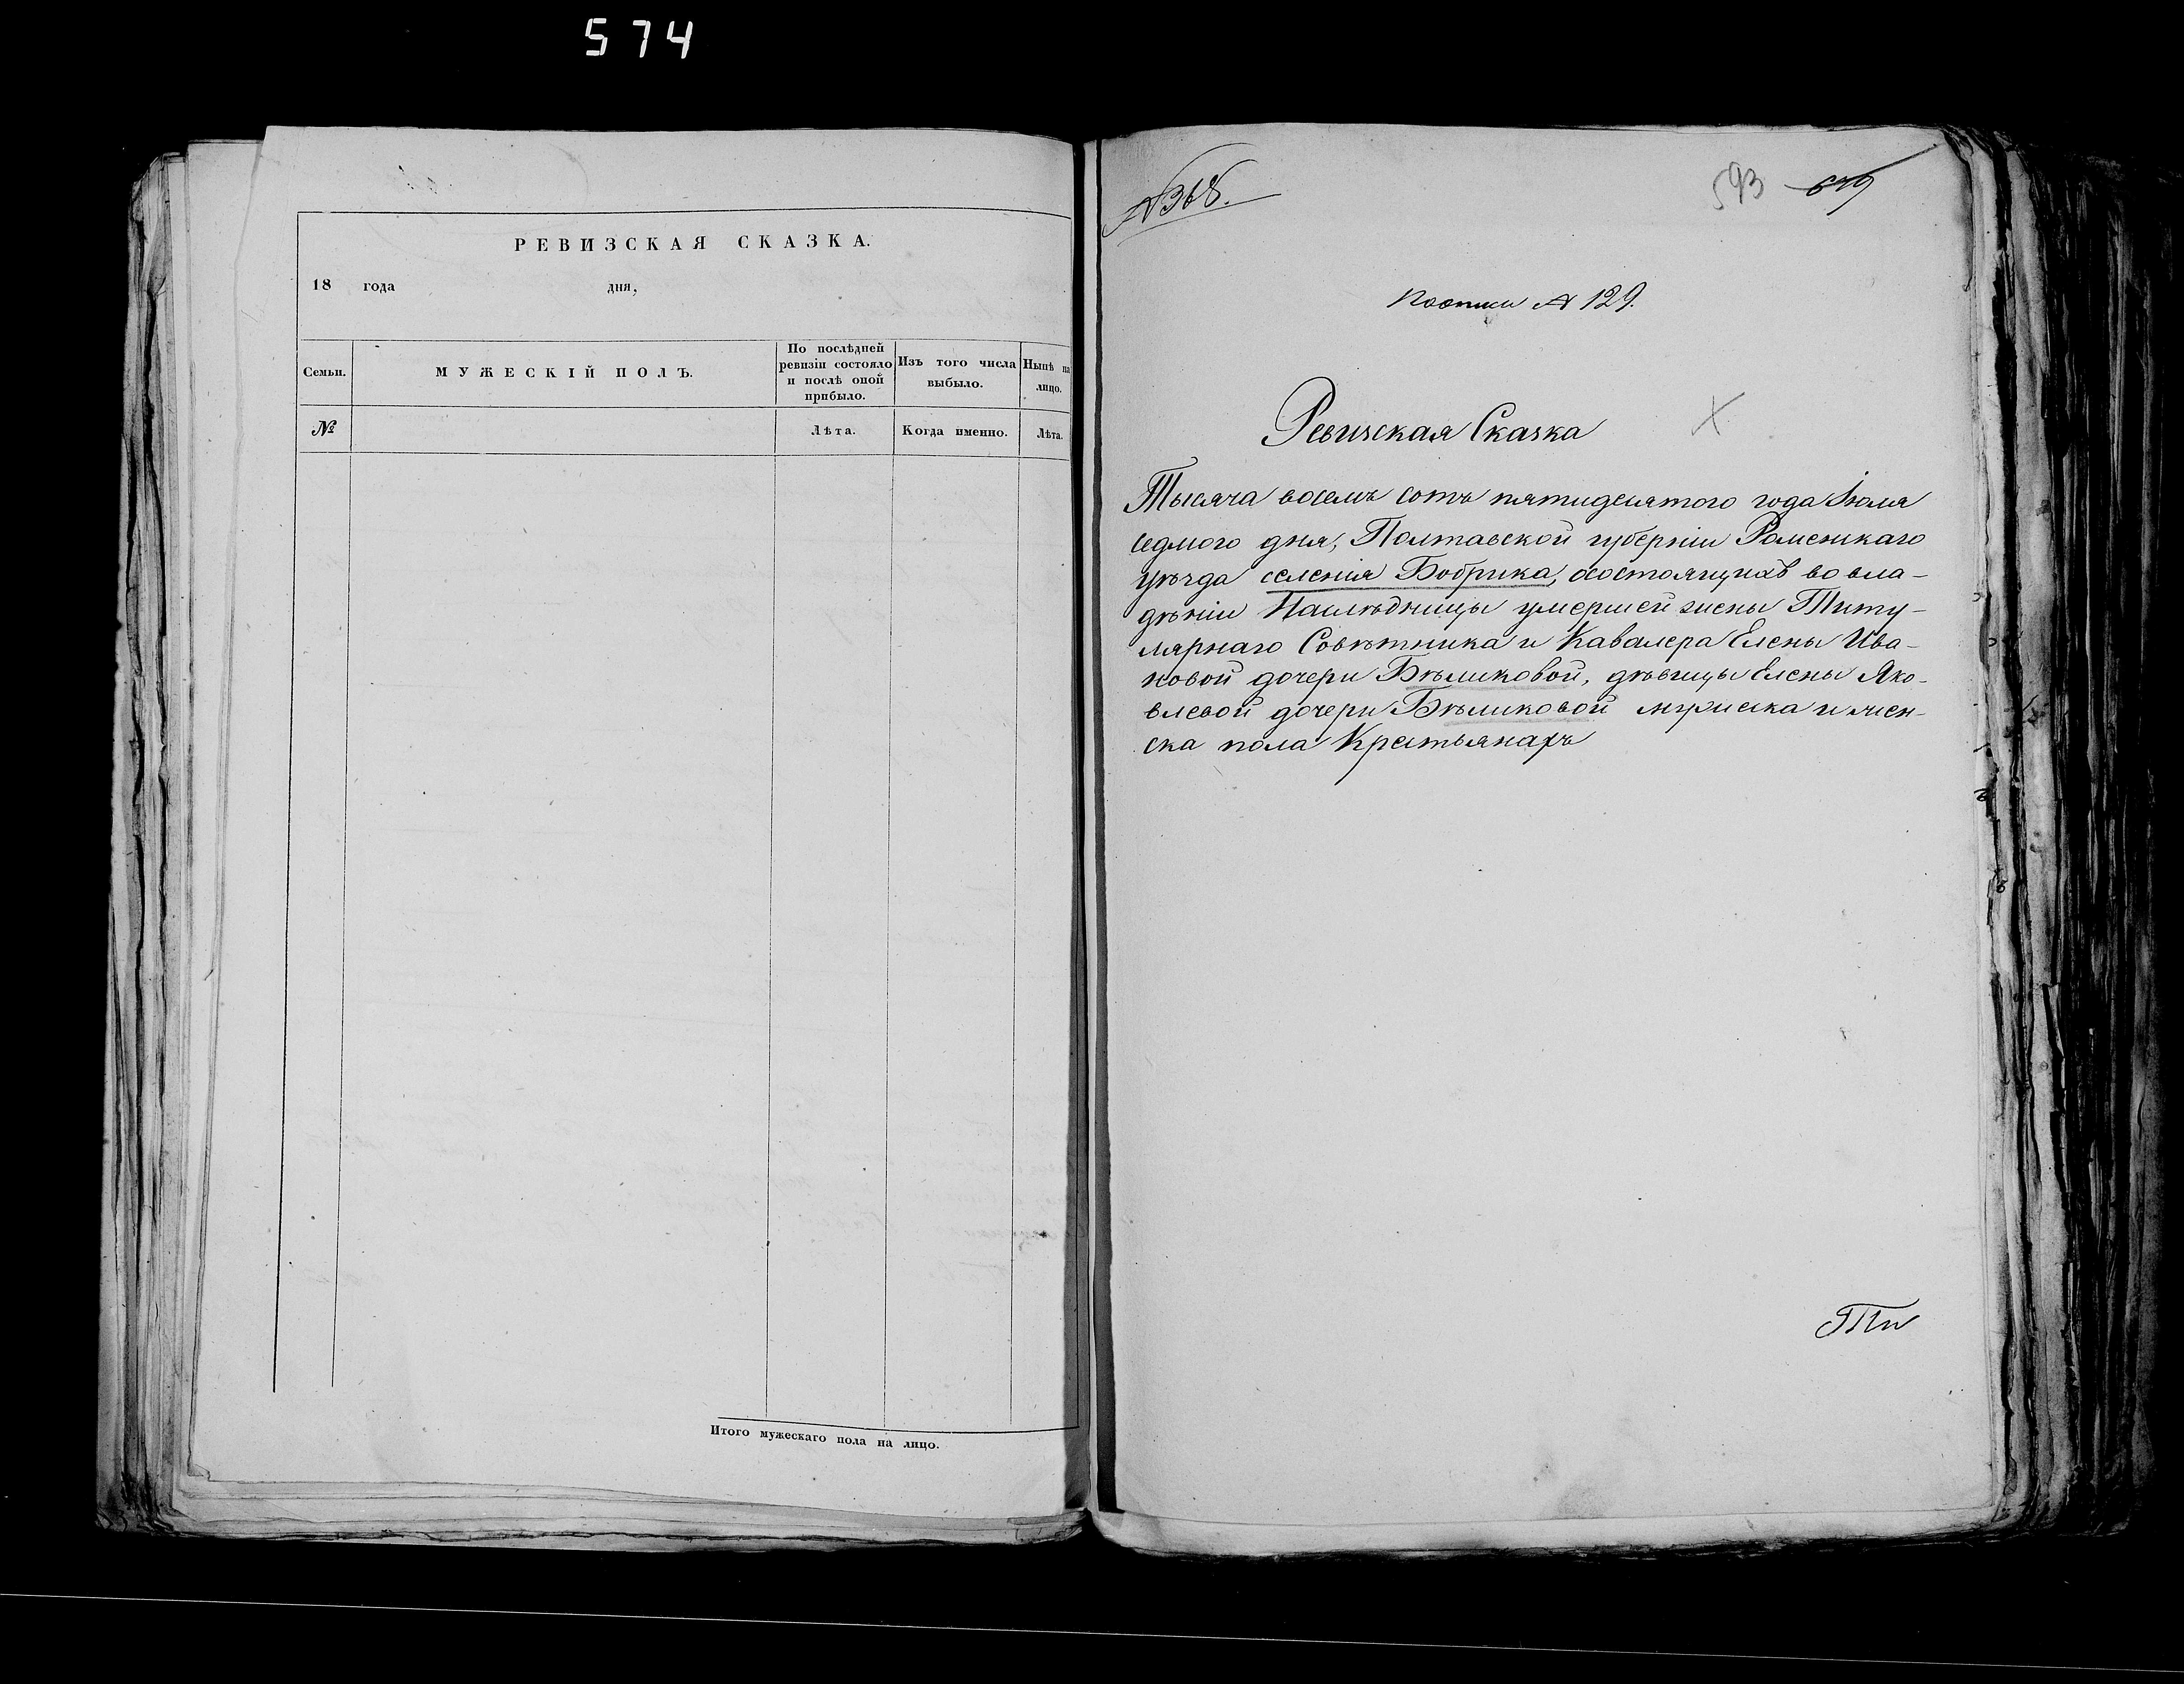 574
РЕВИЗСКАЯ СКАЗКА.
18 года дня,
Семьи.
МУЖЕСКІЙ ПОЛЪ.
По послѣдней ревизіи состояло и послѣ оной прибыло.
Изъ того числа выбыло.
Нынѣ на лицо.
№
Лѣта.
Когда именно.
Лѣта.
Итого мужескаго пола на лицо.
№ 368.
593 679
№ 129.
Ревизская Сказка
Тысяча восемь сотъ пятидесятого года Іюля
седмого дня, Полтавской губерніи Роменскаго
уѣзда селенія Бобрика, состоящихъ во вла-
дѣніи Наслѣдницы умершей жены Титу-
лярнаго Совѣтника и Кавалера Елены Ива-
новой дочери Бѣликовой, дѣвицы Елены Яко-
влевой дочери Бѣликовой мужеска и жен-
ска пола Крестьянахъ